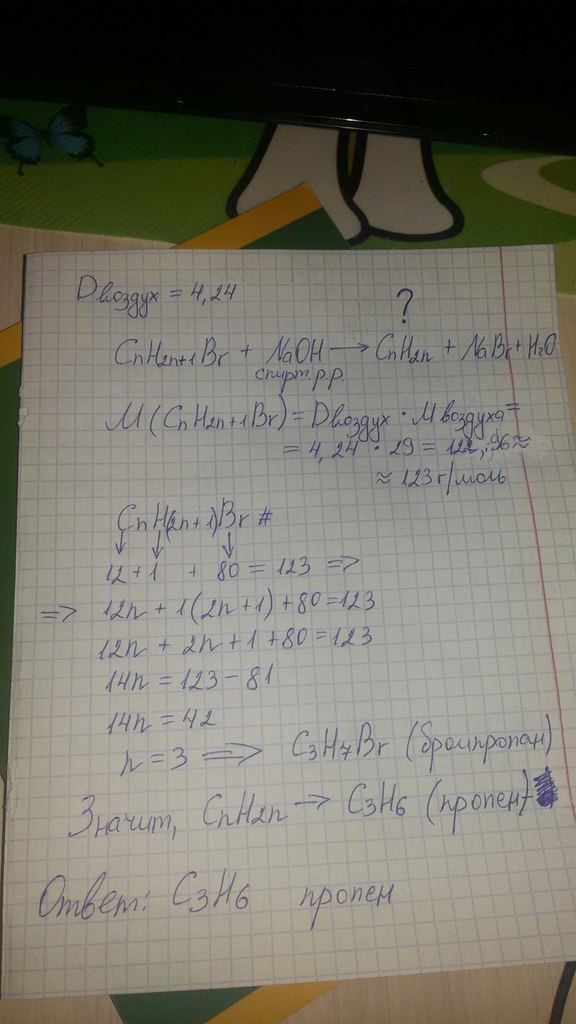 Dвоздух = 4,24
?
CnH2n+1Br + NaOH → CnH2n + NaBr + H2O
спирт. р.р.
M (CnH2n+1Br) = Dвоздух · M воздуха =
= 4,24 · 29 = 122,96 ≈
≈ 123 г/моль
CnH(2n+1)Br #
↓ ↓ ↓
12 + 1 + 80 = 123 =>
=> 12n + 1(2n+1) + 80 = 123
12n + 2n + 1 + 80 = 123
14n = 123 - 81
14n = 42
n = 3 => C3H7Br (бромпропан)
Значит, CnH2n → C3H6 (пропен)
Ответ: C3H6 пропен